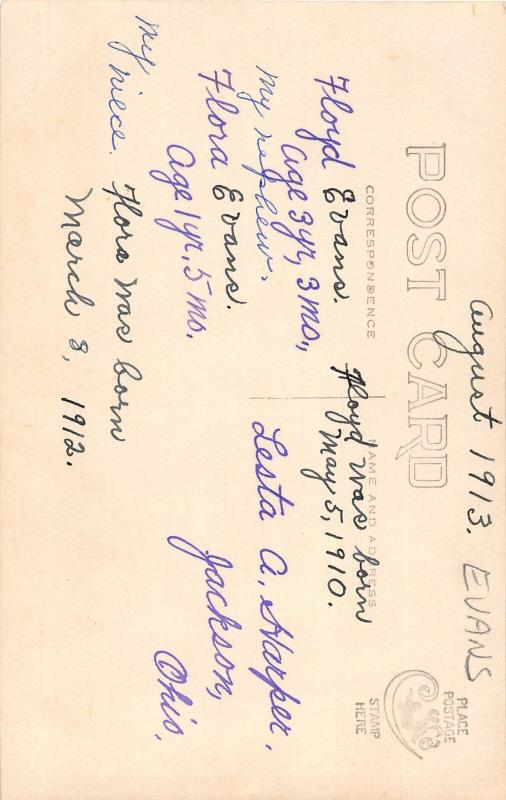 August 1913. EVANS
POST CARD
PLACE
POSTAGE
STAMP
HERE
CORRESPONDENCE
NAME AND ADDRESS
Floyd Evans.
Age 3 yr, 3 mo.,
my nephew.
Flora Evans.
Age 1 yr. 5 mo.
my niece. Flora was born
March 3, 1912.
Floyd was born
May 5, 1910.
Lesta A. Harper.
Jackson,
Ohio.